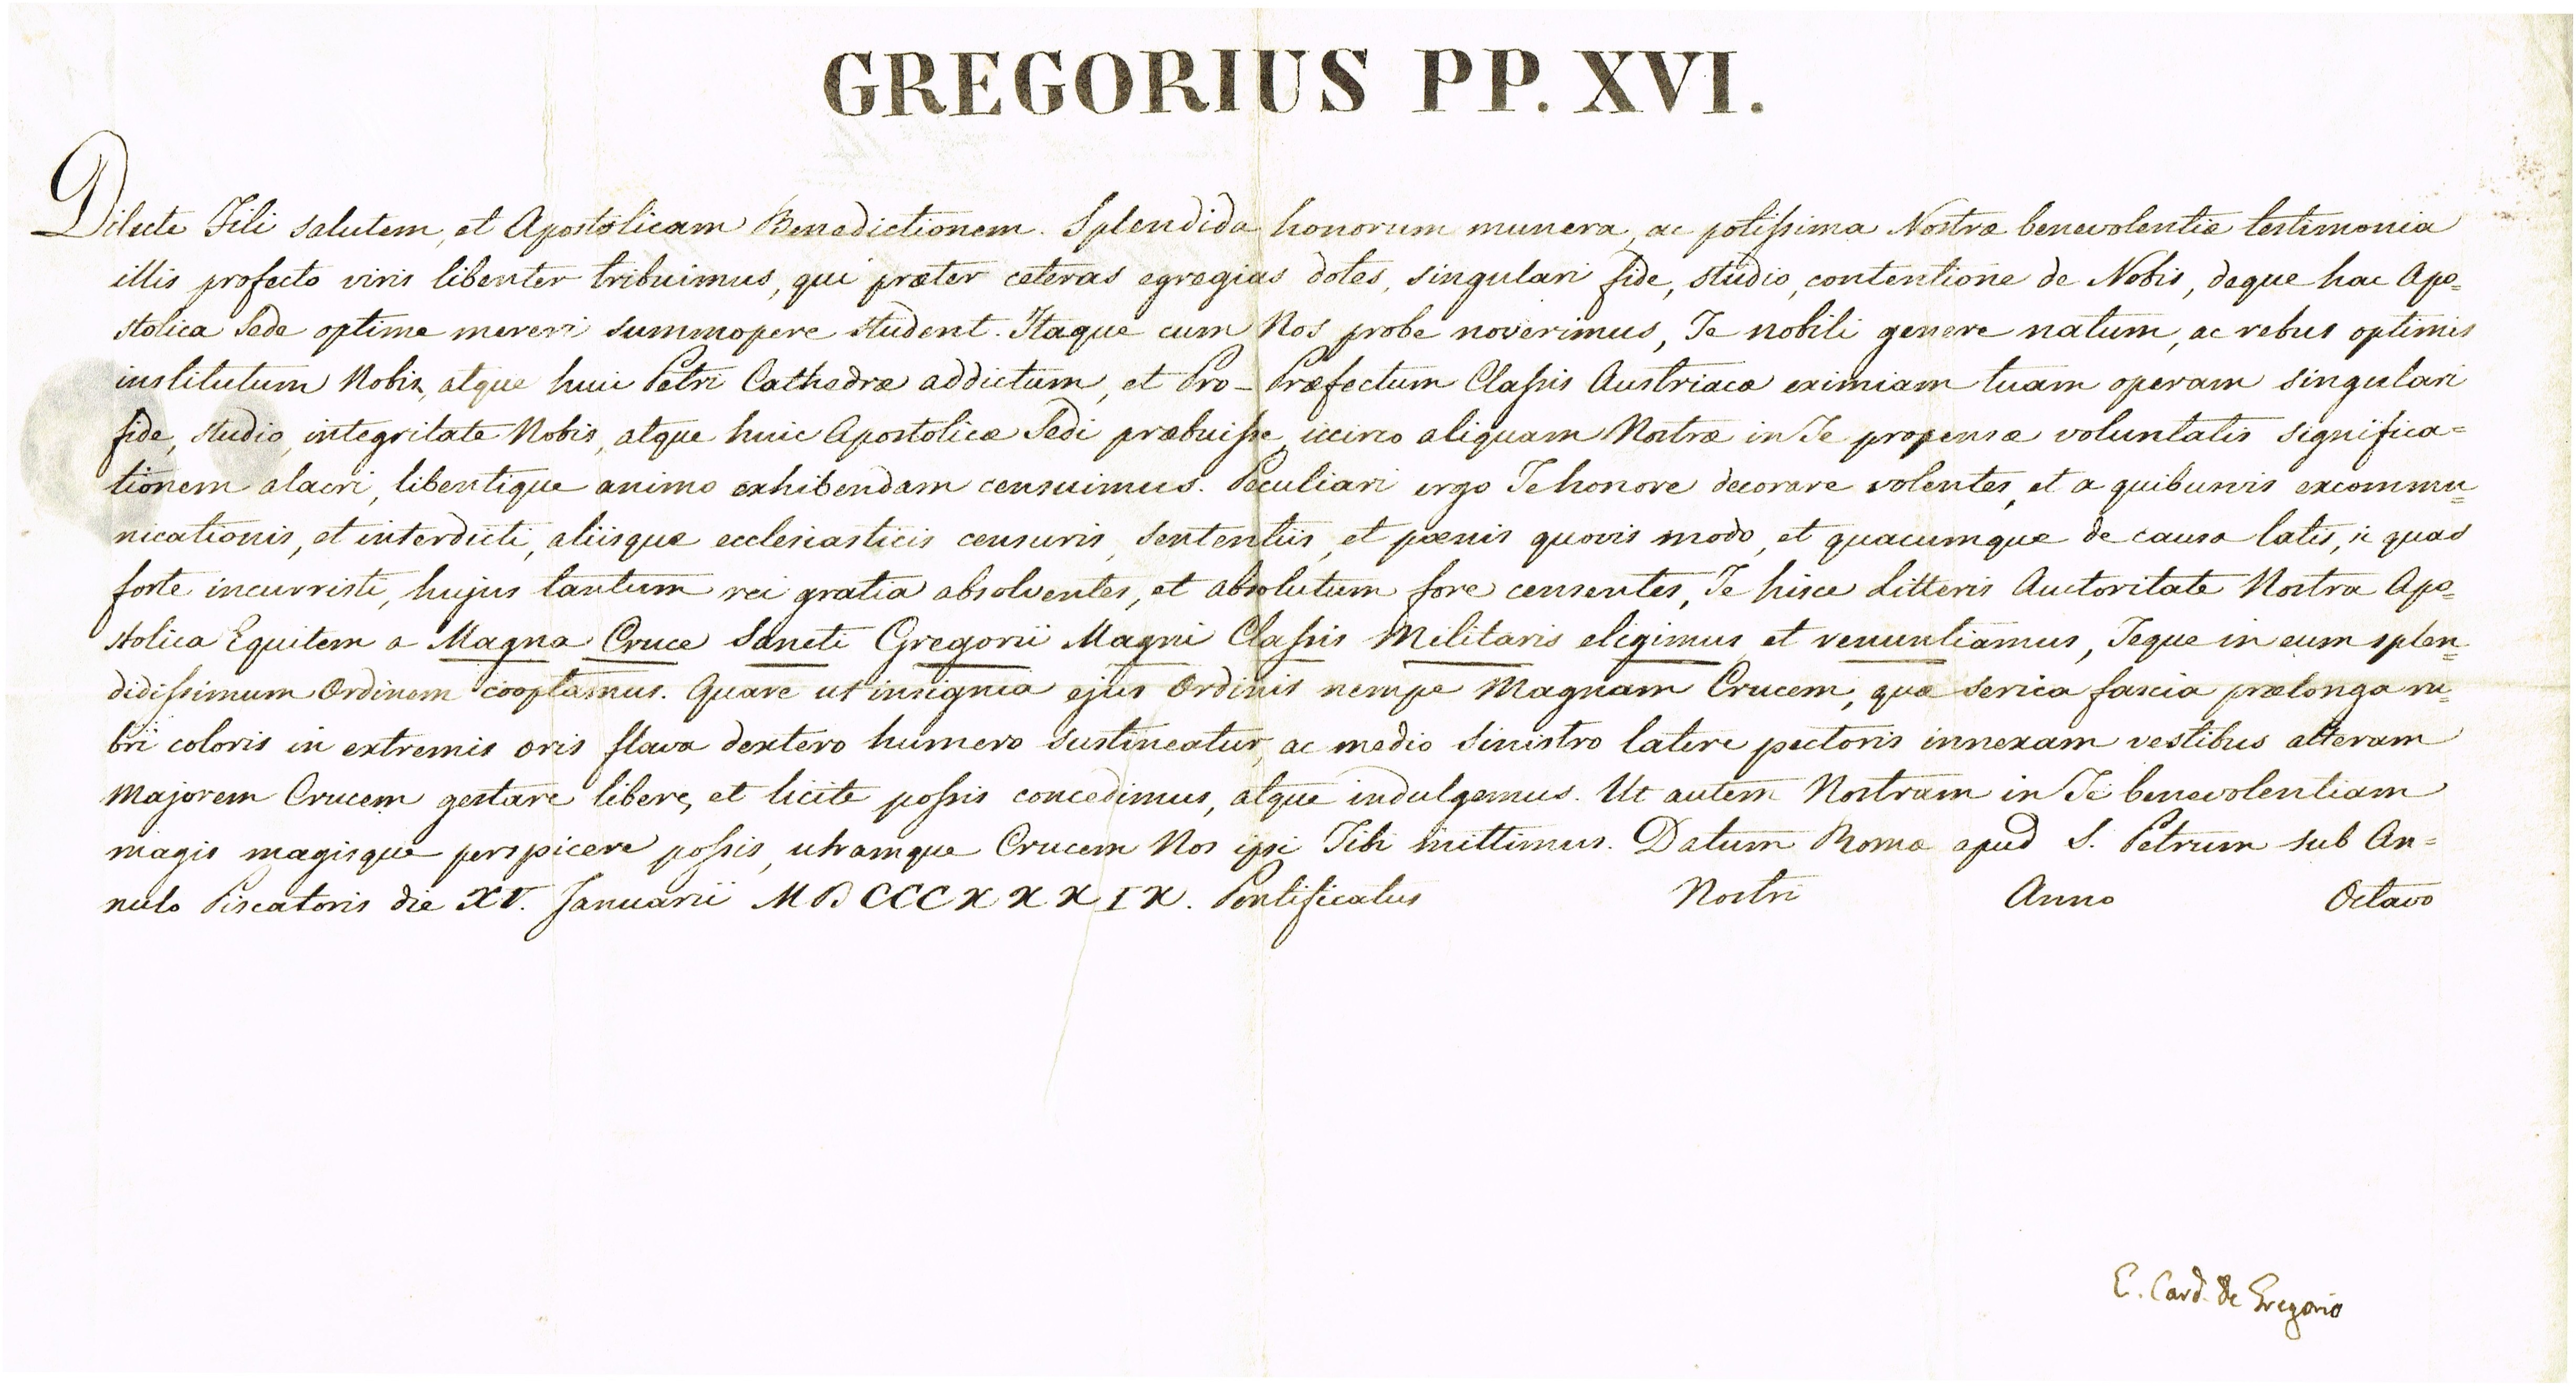 GREGORIUS PP. XVI.
Dilecte Fili salutem, et Apostolicam Benedictionem. Splendida honorum munera, ac potissima Nostræ benevolentiæ testimonia
illis profecto viris libenter tribuimus, qui præter ceteras egregias dotes, singulari fide, studio, contentione de Nobis, deque hac Apo=
stolica Sede optime mereri summopere student. Itaque cum Nos probe noverimus, Te nobili genere natum, ac rebus optimis
institutum Nobis, atque huic Petri Cathedræ addictum, et Pro-Præfectum Classis Austriacæ eximiam tuam operam singulari
fide, studio, integritate Nobis, atque huic Apostolicæ Sedi præbuisse, iccirco aliquam Nostræ in Te propensæ voluntatis significa=
tionem alacri, libentique animo exhibendam censuimus. Peculiari ergo Te honore decorare volentes, et a quibusvis excommu=
nicationis, et interdicti, aliisque ecclesiasticis censuris, sententiis, et pœnis quovis modo, et quacumque de causa latis, si quas
forte incurristi, hujus tantum rei gratia absolventes, et absolutum fore censentes, Te hisce Litteris Auctoritate Nostra Apo=
stolica Equitem a Magna Cruce Sancti Gregorii Magni Classis Militaris eligimus et renuntiamus, Teque in eum splen=
didissimum Ordinem cooptamus. Quare ut insignia ejus Ordinis nempe Magnam Crucem, quæ serica fascia prælonga ru=
bri coloris in extremis oris flava dextero humero sustineatur, ac medio sinistro latere pectoris innexam vestibus alteram
Majorem Crucem gestare libere, et licite possis concedimus, atque indulgemus. Ut autem Nostram in Te benevolentiam
magis magisque perspicere possis, utramque Crucem Nos ipsi Tibi mittimus. Datum Romæ apud S. Petrum sub An=
nulo Piscatoris die XV. Januarii MDCCCXXXIX. Pontificatus Nostri Anno Octavo
E. Card. de Gregorio